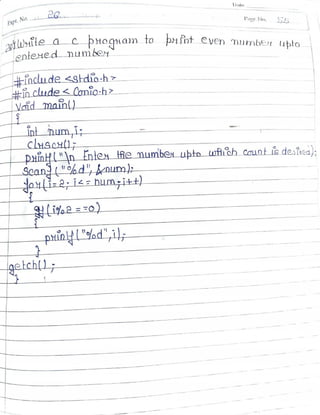 Date
Page No. 26
Page No.
Write a c program to print even number upto
entered number
#include <stdio.h>
#include <Conio.h>
Void main()
{
int num,i;
clrscr();
printf("\n Enter the number upto which count is desired);
Scanf("%d", &num);
for(i=2; i<=num;i++)
{
if(i%2==0)
{
printf("%d",i);
}
getch();
}